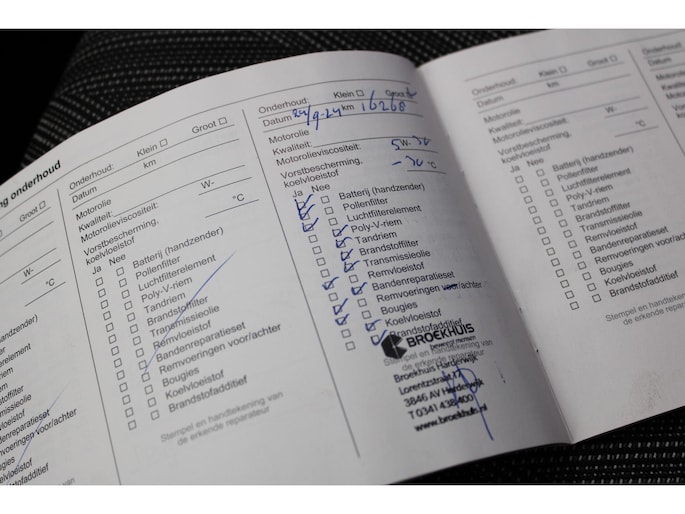 ng onderhoud
Groot
W-
°C
andzender)
erelement
m
ter
ssieolie
of
reparatieset
eringen voor/achter
Onderhoud: Klein Groot
Datum km
Motorolie
Kwaliteit:
Motorolieviscositeit: W-
Vorstbescherming,
koelvloeistof °C
Ja Nee
Batterij (handzender)
Pollenfilter
Luchtfilterelement
Poly-V-riem
Tandriem
Brandstoffilter
Transmissieolie
Remvloeistof
Bandenreparatieset
Remvoeringen voor/achter
Bougies
Koelvloeistof
Brandstofadditief
Stempel en handtekening van
de erkende reparateur
Onderhoud: Klein Groot
Datum 24/9-24 km 16268
Motorolie
Kwaliteit:
Motorolieviscositeit: 5 W- 30
Vorstbescherming,
koelvloeistof -30 °C
Ja Nee
Batterij (handzender)
Pollenfilter
Luchtfilterelement
Poly-V-riem
Tandriem
Brandstoffilter
Transmissieolie
Remvloeistof
Bandenreparatieset
Remvoeringen voor/achter
Bougies
Koelvloeistof
Brandstofadditief
BROEKHUIS
beweegt mensen
Stempel en handtekening van
Broekhuis Harderwijk
Lorentzstraat
3846 AV Harderwijk
T 0341 438 400
www.broekhuis.nl
Onderhoud: Klein Groot
Datum km
Motorolie
Kwaliteit:
Motorolieviscositeit: W-
Vorstbescherming,
koelvloeistof °C
Ja Nee
Batterij (handzender)
Pollenfilter
Luchtfilterelement
Poly-V-riem
Tandriem
Brandstoffilter
Transmissieolie
Remvloeistof
Bandenreparatieset
Remvoeringen voor/achter
Bougies
Koelvloeistof
Brandstofadditief
Stempel en handtekening van
de erkende reparateur
Onderhoud:
Datum
Motorolie
Kwaliteit: